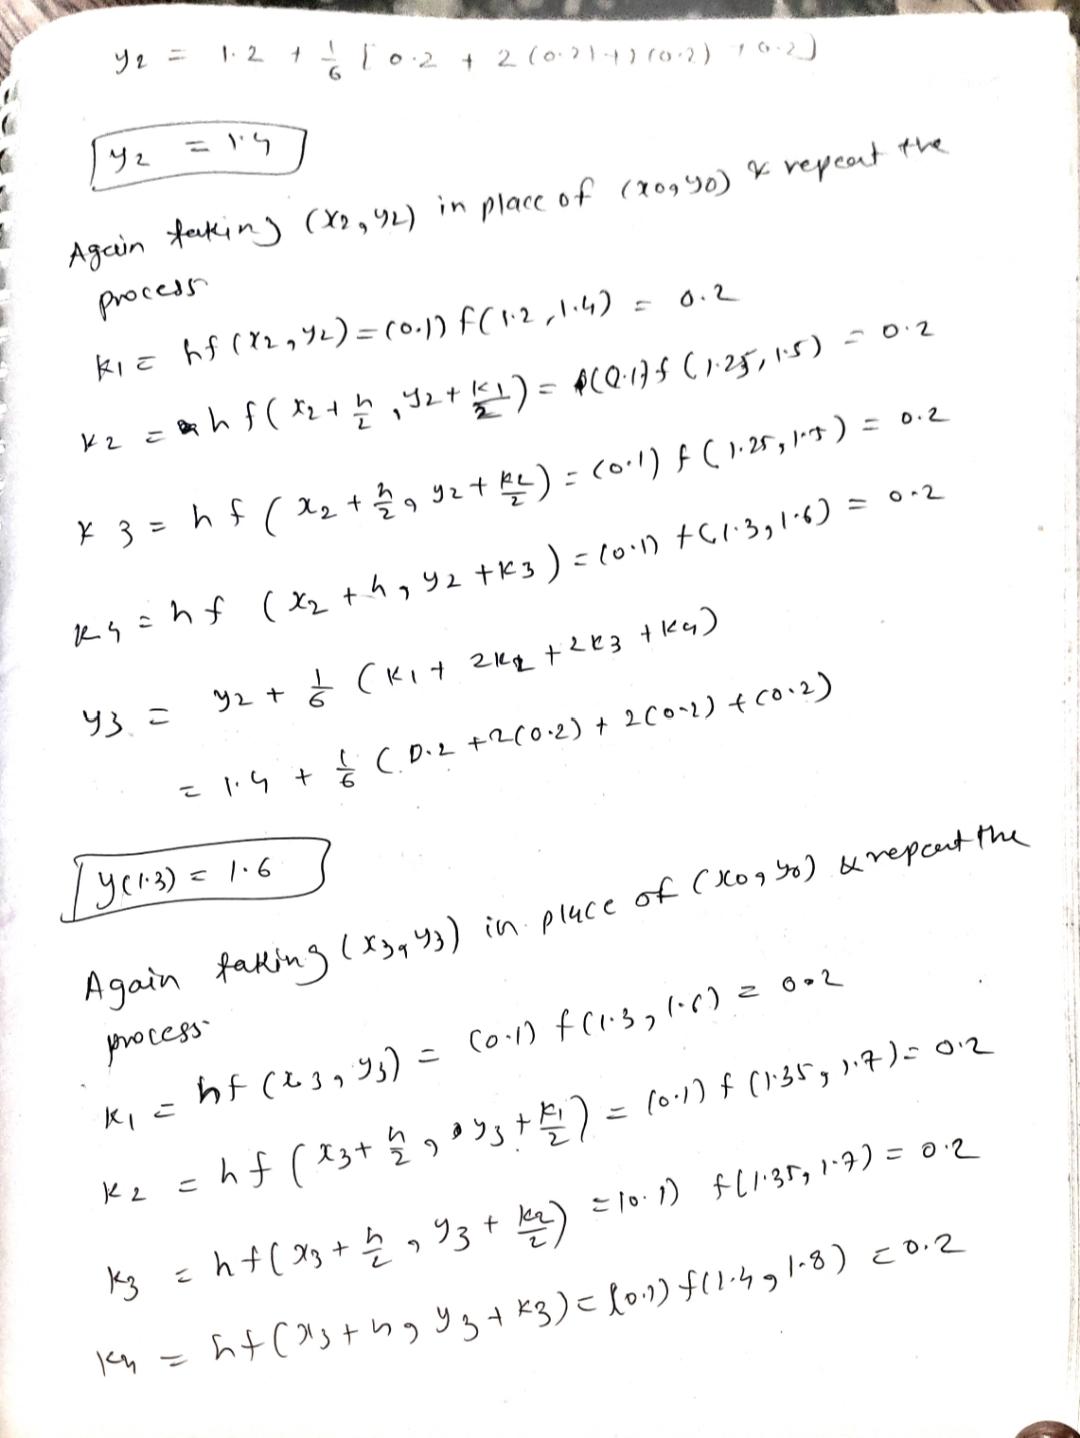 y2 = 1.2 + 1/6 [0.2 + 2(0.2)+2(0.2) + 0.2]
y2 = 1.4
Again taking (x2, y2) in place of (x0, y0) & repeat the
process
k1 = hf(x2, y2) = (0.1) f(1.2, 1.4) = 0.2
k2 = h f(x2 + h/2, y2 + k1/2) = (0.1) f(1.25, 1.5) = 0.2
k3 = h f(x2 + h/2, y2 + k2/2) = (0.1) f(1.25, 1.5) = 0.2
k4 = h f (x2 + h, y2 + k3) = (0.1) f(1.3, 1.6) = 0.2
y3 = y2 + 1/6 (k1 + 2k2 + 2k3 + k4)
= 1.4 + 1/6 (0.2 + 2(0.2) + 2(0.2) + (0.2)
y(1.3) = 1.6
Again taking (x3, y3) in place of (x0, y0) & repeat the
process
k1 = hf(x3, y3) = (0.1) f(1.3, 1.6) = 0.2
k2 = hf(x3 + h/2, y3 + k1/2) = (0.1) f(1.35, 1.7) = 0.2
k3 = hf(x3 + h/2, y3 + k2/2) = (0.1) f(1.35, 1.7) = 0.2
k4 = hf(x3 + h, y3 + k3) = (0.1) f(1.4, 1.8) = 0.2